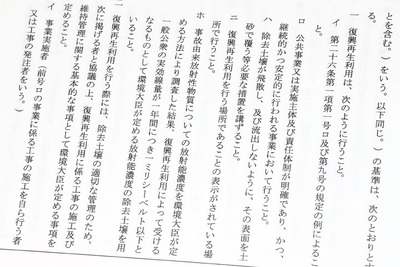 とを含む。）をいう。以下同じ。）の基準は、次のとおりと
る。
一　復興再生利用は、次のように行うこと。
イ　第二十六条第一項第一号ロ及び第九号の規定の例によるこ
ロ　公共事業又は実施主体及び責任体制が明確であり、かつ、
継続的かつ安定的に行われる事業において行うこと。
ハ　除去土壌が飛散し、及び流出しないように、その表面を土
砂で覆う等必要な措置を講ずること。
ニ　復興再生利用を行う場所であることの表示がされている場
所で行うこと。
ホ　事故由来放射性物質についての放射能濃度を環境大臣が定
める方法により調査した結果、復興再生利用によって受ける
一般公衆の実効線量が一年間につき一ミリシーベルト以下と
なるものとして環境大臣が定める放射能濃度の除去土壌を用
いること。
二　復興再生利用を行う際には、除去土壌の適切な管理のため、
次に掲げる者と協議の上、復興再生利用に係る工事の施工及び
維持管理に関する基本的な事項として環境大臣が定める事項を
定めること。
イ　事業実施者（前号ロの事業に係る工事の施工を自ら行う者
又は工事の発注者をいう。）